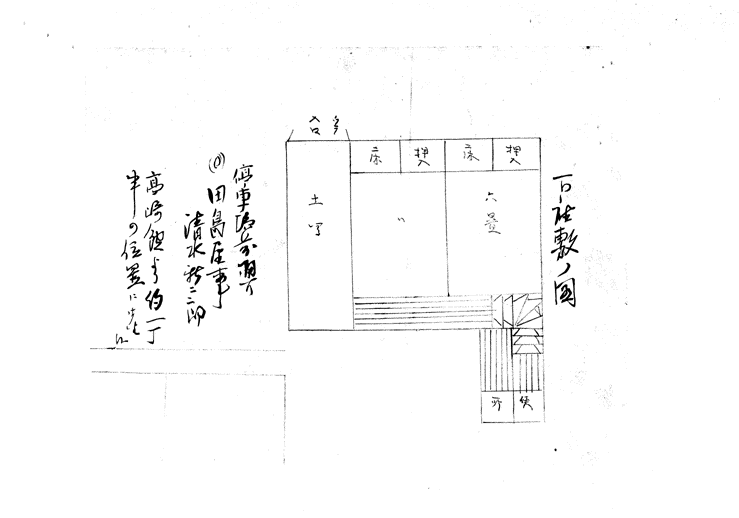 敷ノ図
押入
床
押入
床
六畳
〃
土間
入口
便所
停車場前通り
田島屋事
清水新二郎
高崎館より約一丁
半の位置に